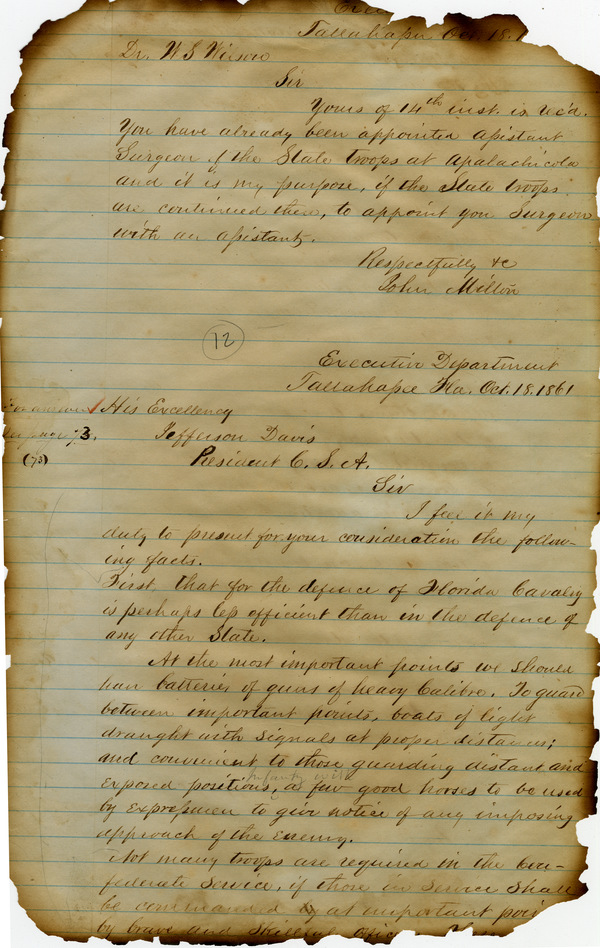 Tallahassee Oct. 18. 1
Dr. W S Wilson
Sir
Yours of 14th inst. is rec'd.
You have already been appointed assistant
Surgeon of the State troops at Apalachicola
and it is my purpose, if the State troops
are continued there, to appoint you Surgeon
with an assistant.
Respectfully &c
John Milton
12
Executive Department
Tallahassee Fla. Oct. 18. 1861
For answer His Excellency
page 73. Jefferson Davis
(73) President C. S. A.
Sir
I feel it my
duty to present for your consideration the follow-
ing facts.
First that for the defence of Florida Cavalry
is perhaps less efficient than in the defence of
any other State.
At the most important points we should
have batteries of guns of heavy Calibre. To guard
between important points, boats of light
draught with signals at proper distances;
and convenient to those guarding distant and
infantry with
exposed positions, a few good horses to be used
by expressmen to give notice of any imposing
approach of the Enemy.
Not many troops are required in the Con-
federate Service, if those in Service shall
be commanded at important poi
by brave and skillful